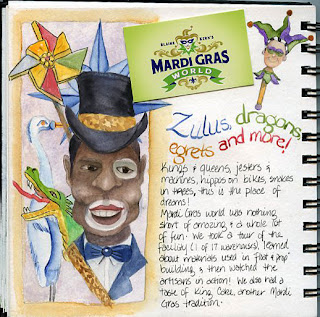 BLAINE KERN'S
MARDI GRAS
WORLD
Zulus, dragons,
egrets and more!
Kings & queens, jesters &
machines, hippos on bikes, snakes
in trees, this is the place of
dreams!
Mardi Gras world was nothing
short of amazing, & a whole lot
of fun. We took a tour of the
facility (1 of 17 warehouses), learned
about materials used in float & prop
building, & then watched the
artisans in action! We also had a
taste of King Cake, another Mardi
Gras tradition.